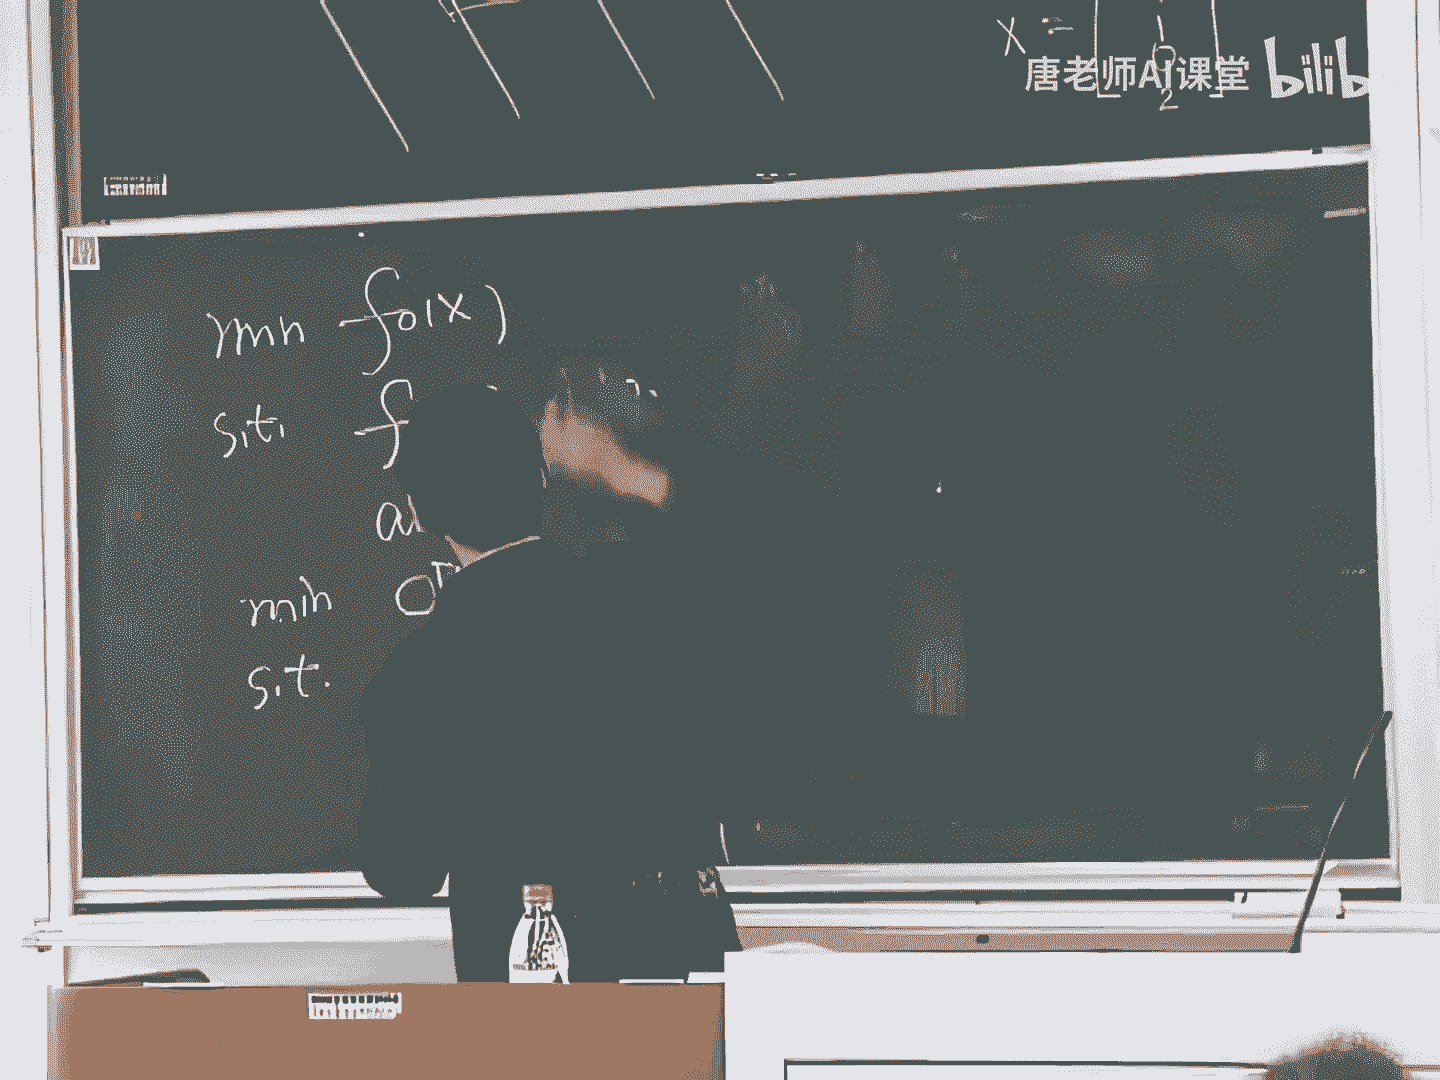 x = [ 1 0 2 ]
唐老师AI课堂 bilib
min f₀(x)
s.t. f
a
min
s.t.